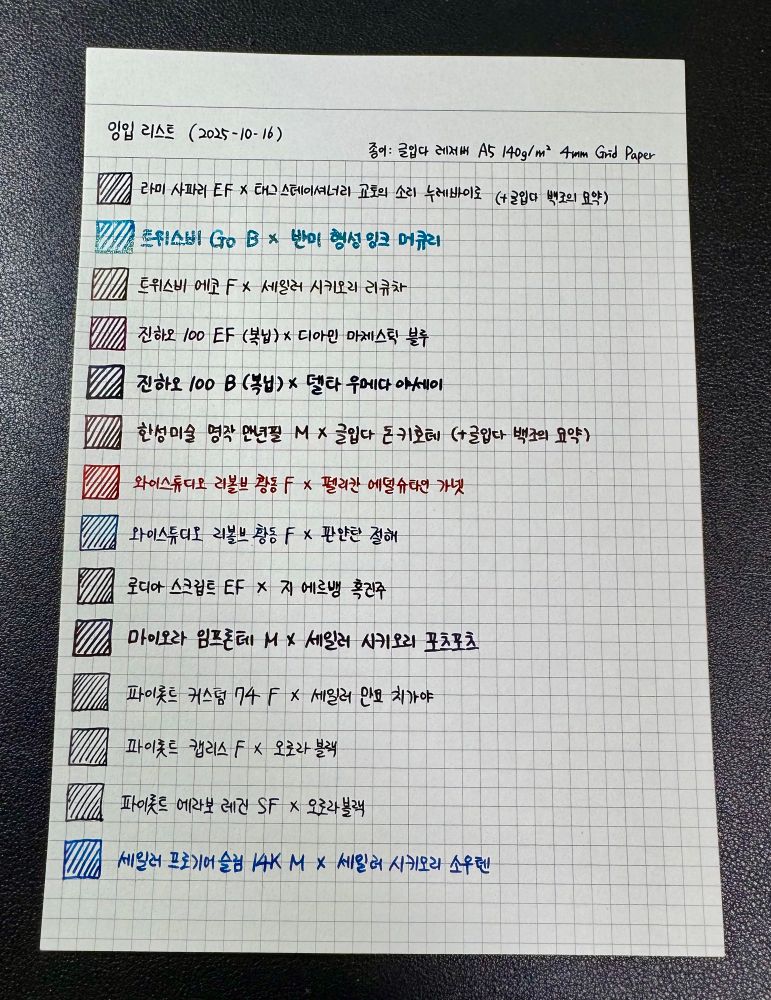 잉입 리스트 (2025-10-16)
종이: 글입다 레저버 A5 140g/m² 4mm Grid Paper
라미 사파리 EF × 태그스테이셔너리 교토의 소리 누레바이로 (+글입다 백조의 묘약)
트위스비 Go B × 반미 행성잉크 머큐리
트위스비 에코 F × 세일러 시키오리 리큐차
진하오 100 EF (복닙) × 디아민 마제스틱 블루
진하오 100 B (복닙) × 델타 우메다 야세이
한성미술 명작 만년필 M × 글입다 돈키호테 (+글입다 백조의 묘약)
와이스튜디오 리볼브 황동 F × 펠리칸 에델슈타인 가넷
와이스튜디오 리볼브 황동 F × 판얀탄 절해
로디아 스크립트 EF × 지 에르뱅 흑진주
마이오라 임프론테 M × 세일러 시키오리 포츠포츠
파이롯트 커스텀 74 F × 세일러 만요 치가야
파이롯트 캡리스 F × 오로라 블랙
파이롯트 에라보 레진 SF × 오로라 블랙
세일러 프로기어 슬림 14K M × 세일러 시키오리 소우텐